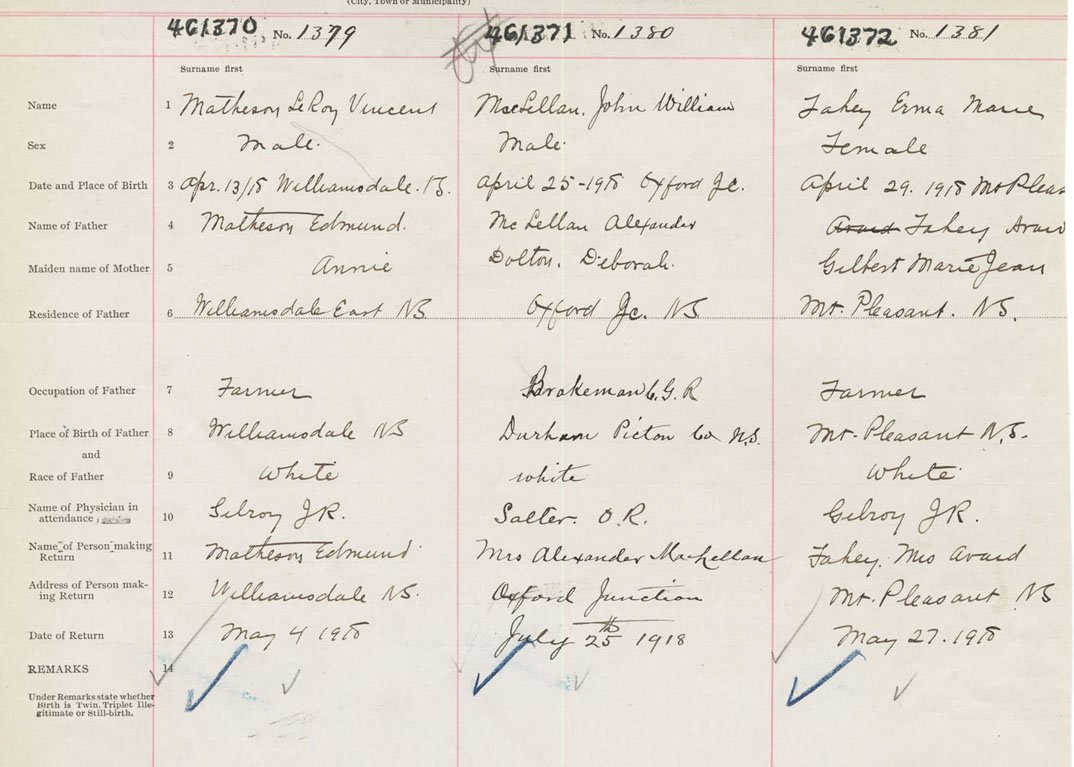 (City, Town or Municipality)
461370 No. 1379 461371 No. 1380 461372 No. 1381
Surname first Surname first Surname first
Name 1 Matheson LeRoy Vincent MacLellan, John William Fahey Erma Marie
Sex 2 Male. Male. Female
Date and Place of Birth 3 Apr. 13/18 Williamsdale. April 25-1918 Oxford Jc. April 29. 1918 Mt Pleas
Name of Father 4 Matheson Edmund. McLellan Alexander Avard Fahey Avard
Maiden name of Mother 5 Annie Dolton, Deborah. Gilbert Marie Jean
Residence of Father 6 Williamsdale East NS Oxford Jc. NS Mt. Pleasant. NS.
Occupation of Father 7 Farmer Brakeman C.G.R Farmer
Place of Birth of Father 8 Williamsdale NS Durham Pictou Co N.S. Mt-Pleasant N.S.
and
Race of Father 9 White white White
Name of Physician in
attendance 10 Gilroy J.R. Salter. O.R. Gilroy J.R.
Name of Person making
Return 11 Matheson Edmund Mrs Alexander MacLellan Fahey, Mrs Avard
Address of Person mak-
ing Return 12 Williamsdale NS. Oxford Junction Mt. Pleasant NS
Date of Return 13 May 4 1918 July 25th 1918 May 27. 1918
REMARKS 14
Under Remarks state whether
Birth is Twin, Triplet Ille-
gitimate or Still-birth.